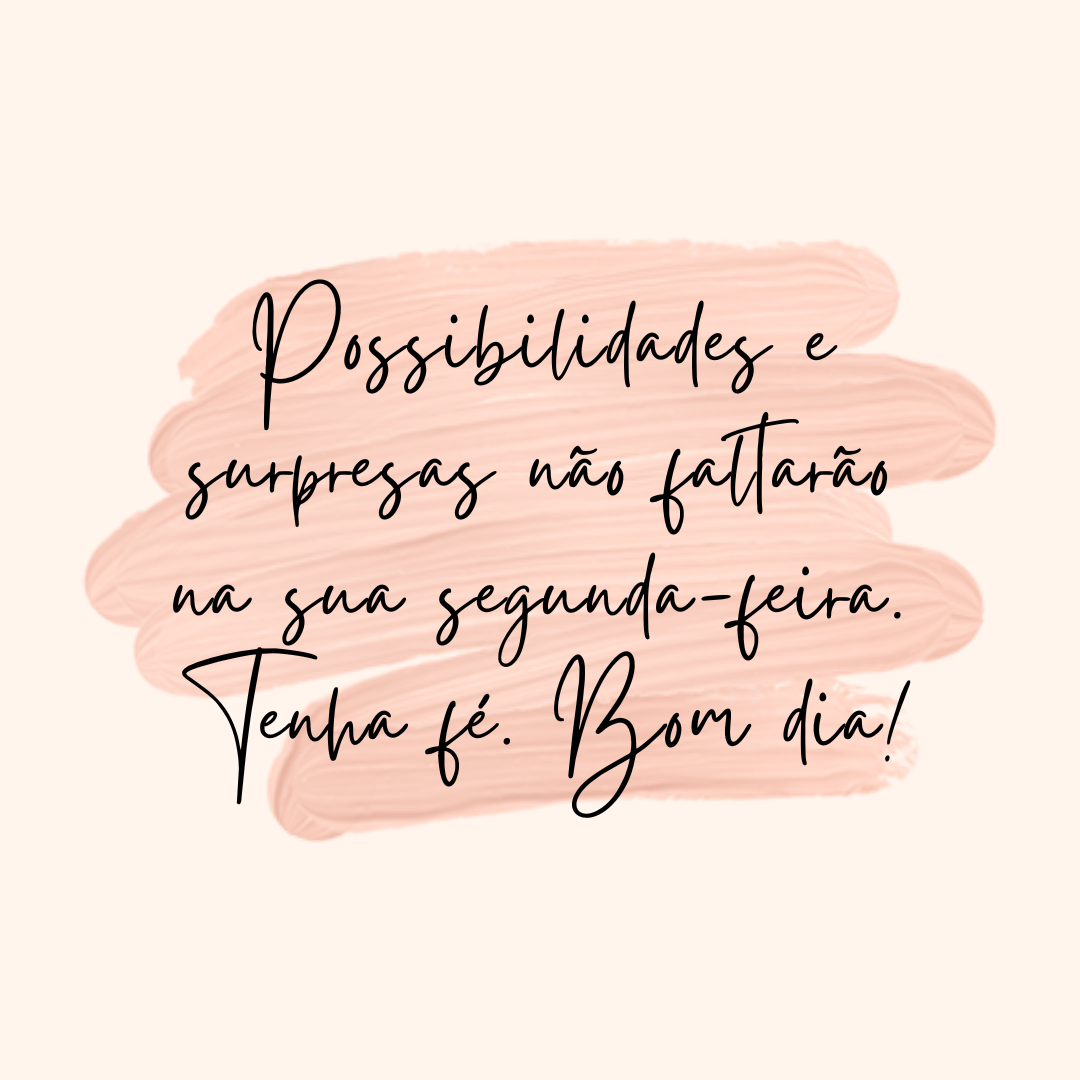 Possibilidades e
surpresas não faltarão
na sua segunda-feira.
Tenha fé. Bom dia!